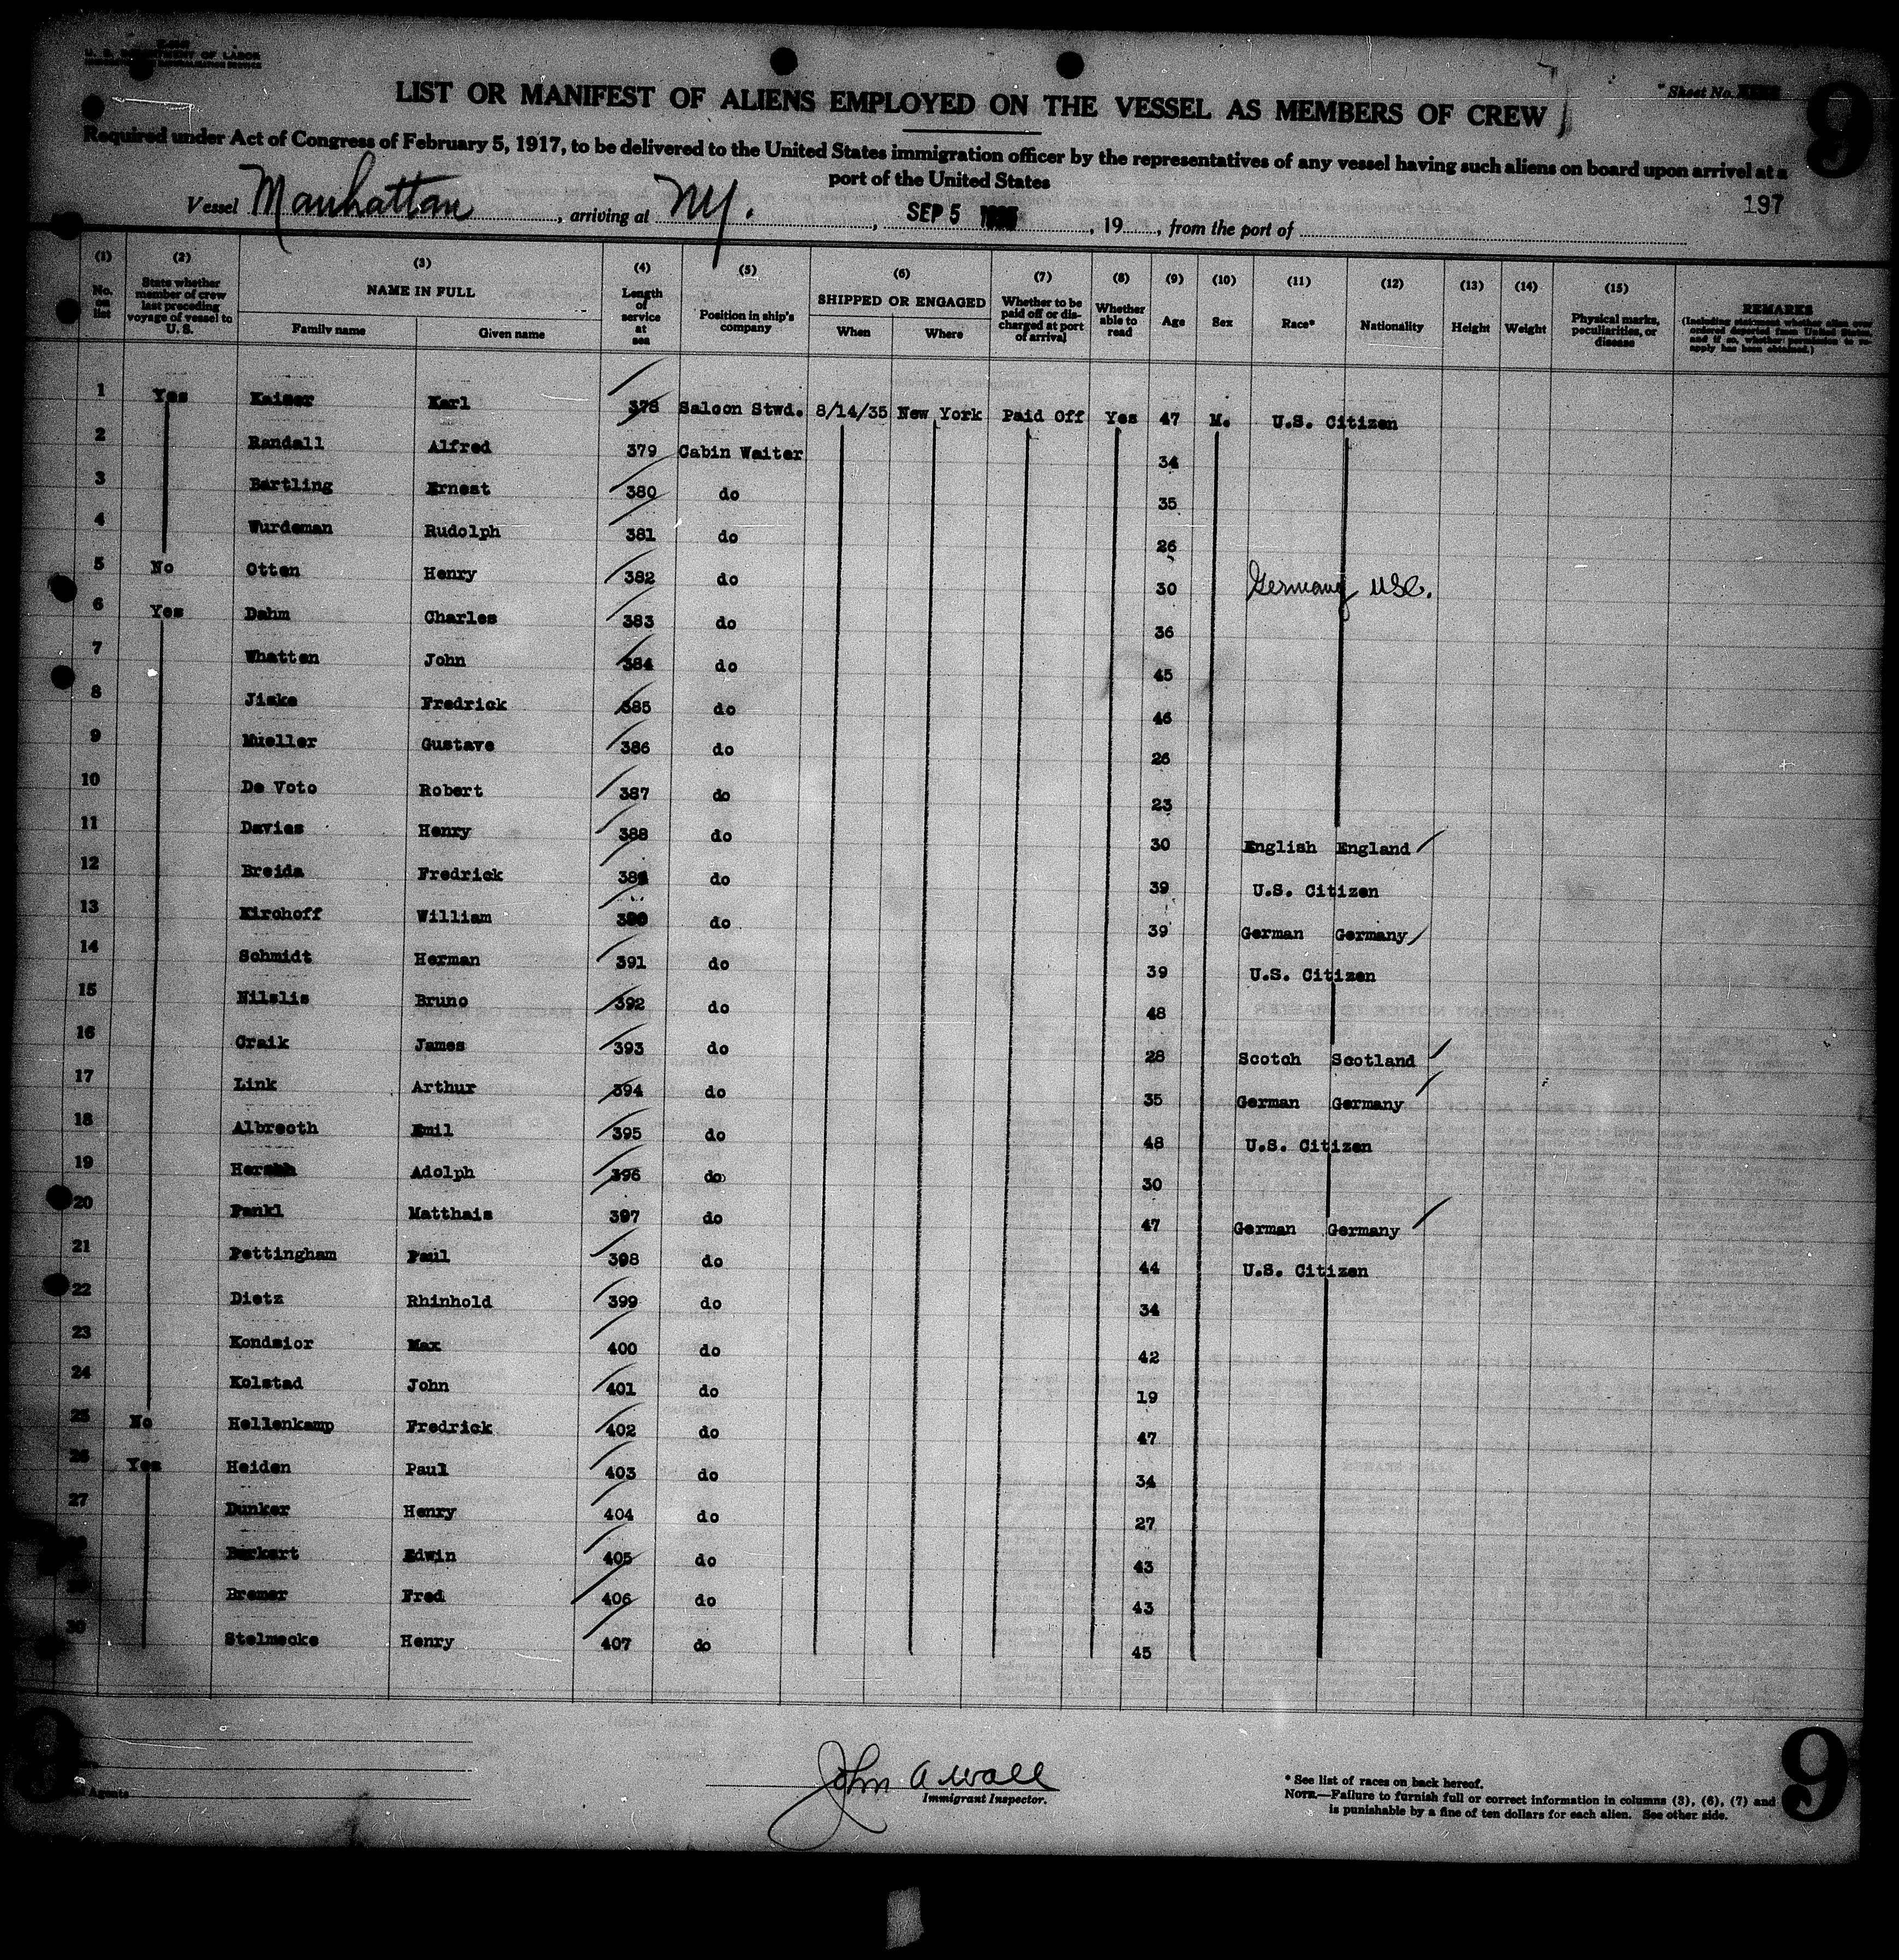 U. S. DEPARTMENT OF LABOR
Sheet No.
9
LIST OR MANIFEST OF ALIENS EMPLOYED ON THE VESSEL AS MEMBERS OF CREW
Required under Act of Congress of February 5, 1917, to be delivered to the United States immigration officer by the representatives of any vessel having such aliens on board upon arrival at a
port of the United States
197
Vessel Manhattan, arriving at NY., SEP 5 1935, 19, from the port of
(1) (2) (3) (4) (5) (6) (7) (8) (9) (10) (11) (12) (13) (14) (15)
No. on list State whether member of crew last preceding voyage of vessel to U. S. NAME IN FULL Family name Given name Length of service at sea Position in ship's company SHIPPED OR ENGAGED When Where Whether to be paid off or discharged at port of arrival Whether able to read Age Sex Race* Nationality Height Weight Physical marks, peculiarities, or disease REMARKS (Including statement whether alien ever ordered deported from United States and if so, whether permission to reapply has been obtained.)
1 Yes Kaiser Karl 378 Saloon Stwd. 8/14/35 New York Paid Off Yes 47 M. U.S. Citizen
2 Randall Alfred 379 Cabin Waiter 34
3 Bartling Ernest 380 do 35
4 Wurdeman Rudolph 381 do 26
5 No Otten Henry 382 do 30 Germany USC.
6 Yes Dahm Charles 383 do 36
7 Whatten John 384 do 45
8 Jiske Fredrick 385 do 46
9 Mueller Gustave 386 do 26
10 De Voto Robert 387 do 23
11 Davies Henry 388 do 30 English England
12 Breida Fredrick 389 do 39 U.S. Citizen
13 Kirchoff William 390 do 39 German Germany
14 Schmidt Herman 391 do 39 U.S. Citizen
15 Nilslis Bruno 392 do 48
16 Craik James 393 do 28 Scotch Scotland
17 Link Arthur 394 do 35 German Germany
18 Albrecth Emil 395 do 48 U.S. Citizen
19 Adolph 396 do 30
20 Pankl Matthais 397 do 47 German Germany
21 Pettingham Paul 398 do 44 U.S. Citizen
22 Dietz Rhinhold 399 do 34
23 Kondsior Max 400 do 42
24 Kolstad John 401 do 19
25 No Hellenkamp Fredrick 402 do 47
26 Yes Heiden Paul 403 do 34
27 Dunker Henry 404 do 27
Burkart Edwin 405 do 43
Bremer Fred 406 do 43
30 Stelmecke Henry 407 do 45
Agents
John A Wall
Immigrant Inspector.
* See list of races on back hereof.
NOTE.—Failure to furnish full or correct information in columns (3), (6), (7) and
is punishable by a fine of ten dollars for each alien. See other side.
9
9